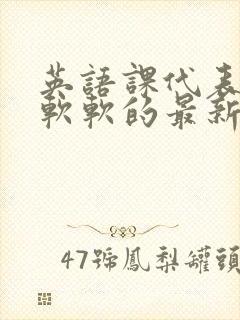 英語課代表
軟軟的最新
47號鳳梨罐頭